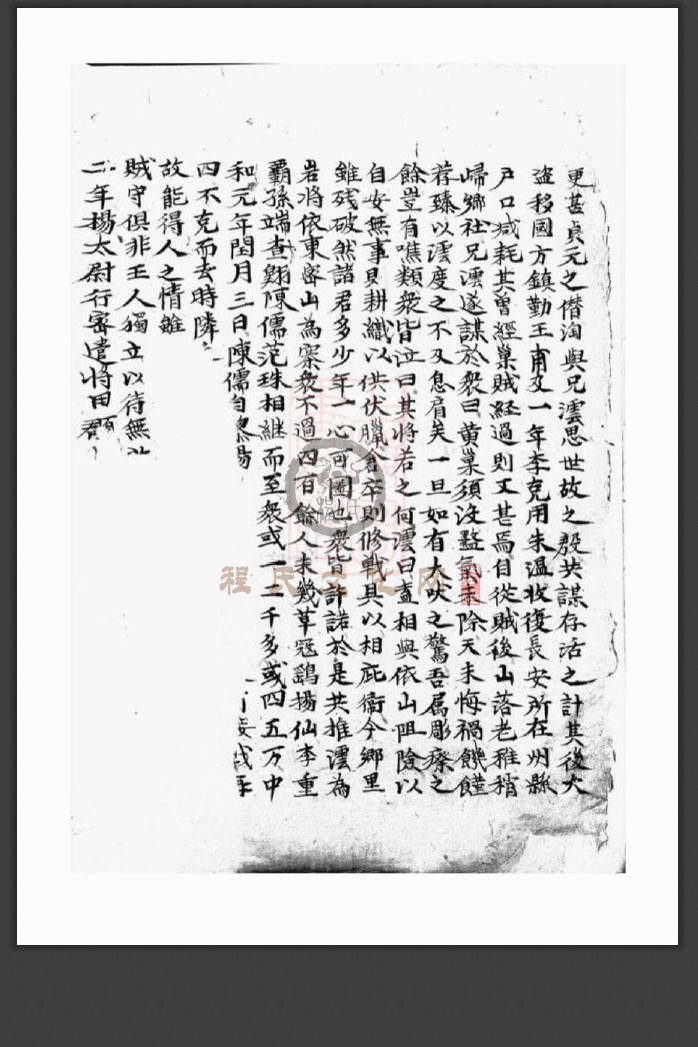 更甚貞元之僭淘與兄澐思世故之殷共謀存活之計其後大
盜移國方鎮勤王甫及一年李克用朱溫收復長安所在州縣
戶口減耗其曾經巢賊経過則又甚焉自從賊後山落老稚稍
歸鄉社兄澐遂謀於衆曰黃巢須没盭氣未除天未悔禍饑饉
荐臻以澐度之不及息肩矣一旦如有犬吠之驚吾属彫瘵之
餘豈有噍類衆皆泣曰其將若之何澐曰盍相與依山阻險以
自安無事則耕織以供伏臘倉卒則修戰具以相庇衛今鄉里
雖残破然諸君多少年一心可圖也衆皆許諾於是共推澐為
岩將依東密山為寨衆不過四百餘人未幾草冦鷄揚仙李重
霸孫端查翺陳儒范珠相継而至衆或一二千多或四五万中
和元年閏月三日陳儒自 揚
四不克而去時隣
故能得人之情雖
賊守俱非王人獨立以待無
二年揚太尉行宻遣將田頵
程氏文化网